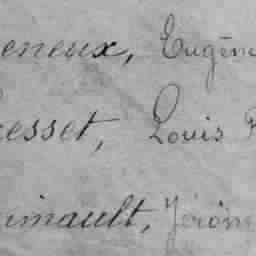 eneux, Eugène
esset, Louis
imault, Jérôm